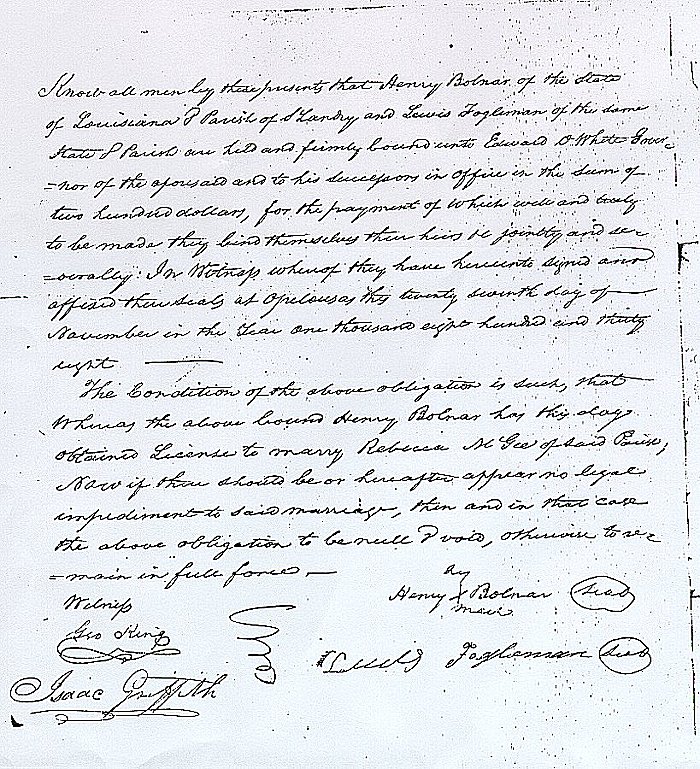 Know all men by these presents that Henry Bolnar of the State
of Louisiana & Parish of St Landry and Lewis Fogleman of the same
State & Parish are held and firmly bound unto Edward D White Gover-
=nor of the aforesaid and to his successors in office in the sum of
two hundred dollars, for the payment of which well and truly
to be made they bind themselves their heirs &c jointly and se-
=verally: In Witness whereof they have hereunto signed and
affixed their seals at Opelousas this twenty seventh day of
November in the Year one thousand eight hundred and thirty
eight
The Condition of the above obligation is such, that
Whereas the above bound Henry Bolnar has this day
obtained License to marry Rebecca McGee of said Parish;
Now if there should be or hereafter appear no legal
impediment to said marriage, then and in that case
the above obligation to be null & void, otherwise to re-
=main in full force. —
Witness
Henry his Bolnar Seal
mark
Geo King
Lewis Fogleman Seal
Isaac Griffith